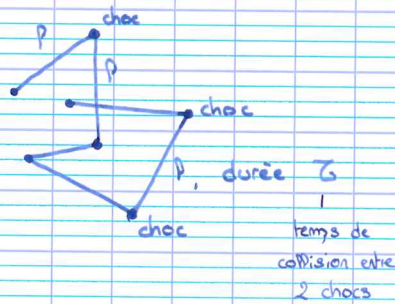 choc
P
P
choc
P, durée τ
choc
temps de
collision entre
2 chocs